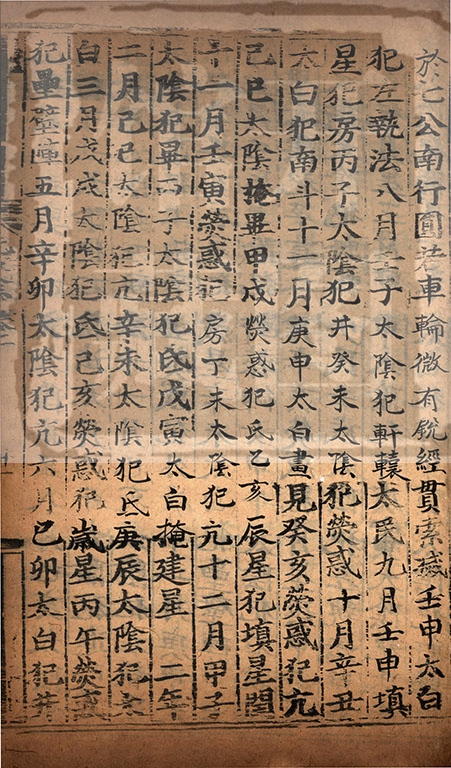 於七公南行圓若車輪微有銳經貫索滅壬申太白
犯左執法八月壬子太陰犯軒轅太民九月壬申填
星犯房丙子太陰犯井癸未太陰犯熒惑十月辛丑
太白犯南斗十一月庚申太白晝見癸亥熒惑犯亢
己巳太陰掩畢甲戌熒惑犯氐乙亥辰星犯填星閏
十一月壬寅熒惑犯房丁未太陰犯亢十二月甲子
太陰犯畢丙子太陰犯氐戊寅太白掩建星二年
二月己巳太陰犯亢辛未太陰犯氐庚辰太陰犯太
白三月戊戌太陰犯氐己亥熒惑犯歲星丙午熒惑
犯壘壁陣五月辛卯太陰犯亢六月己卯太白犯井